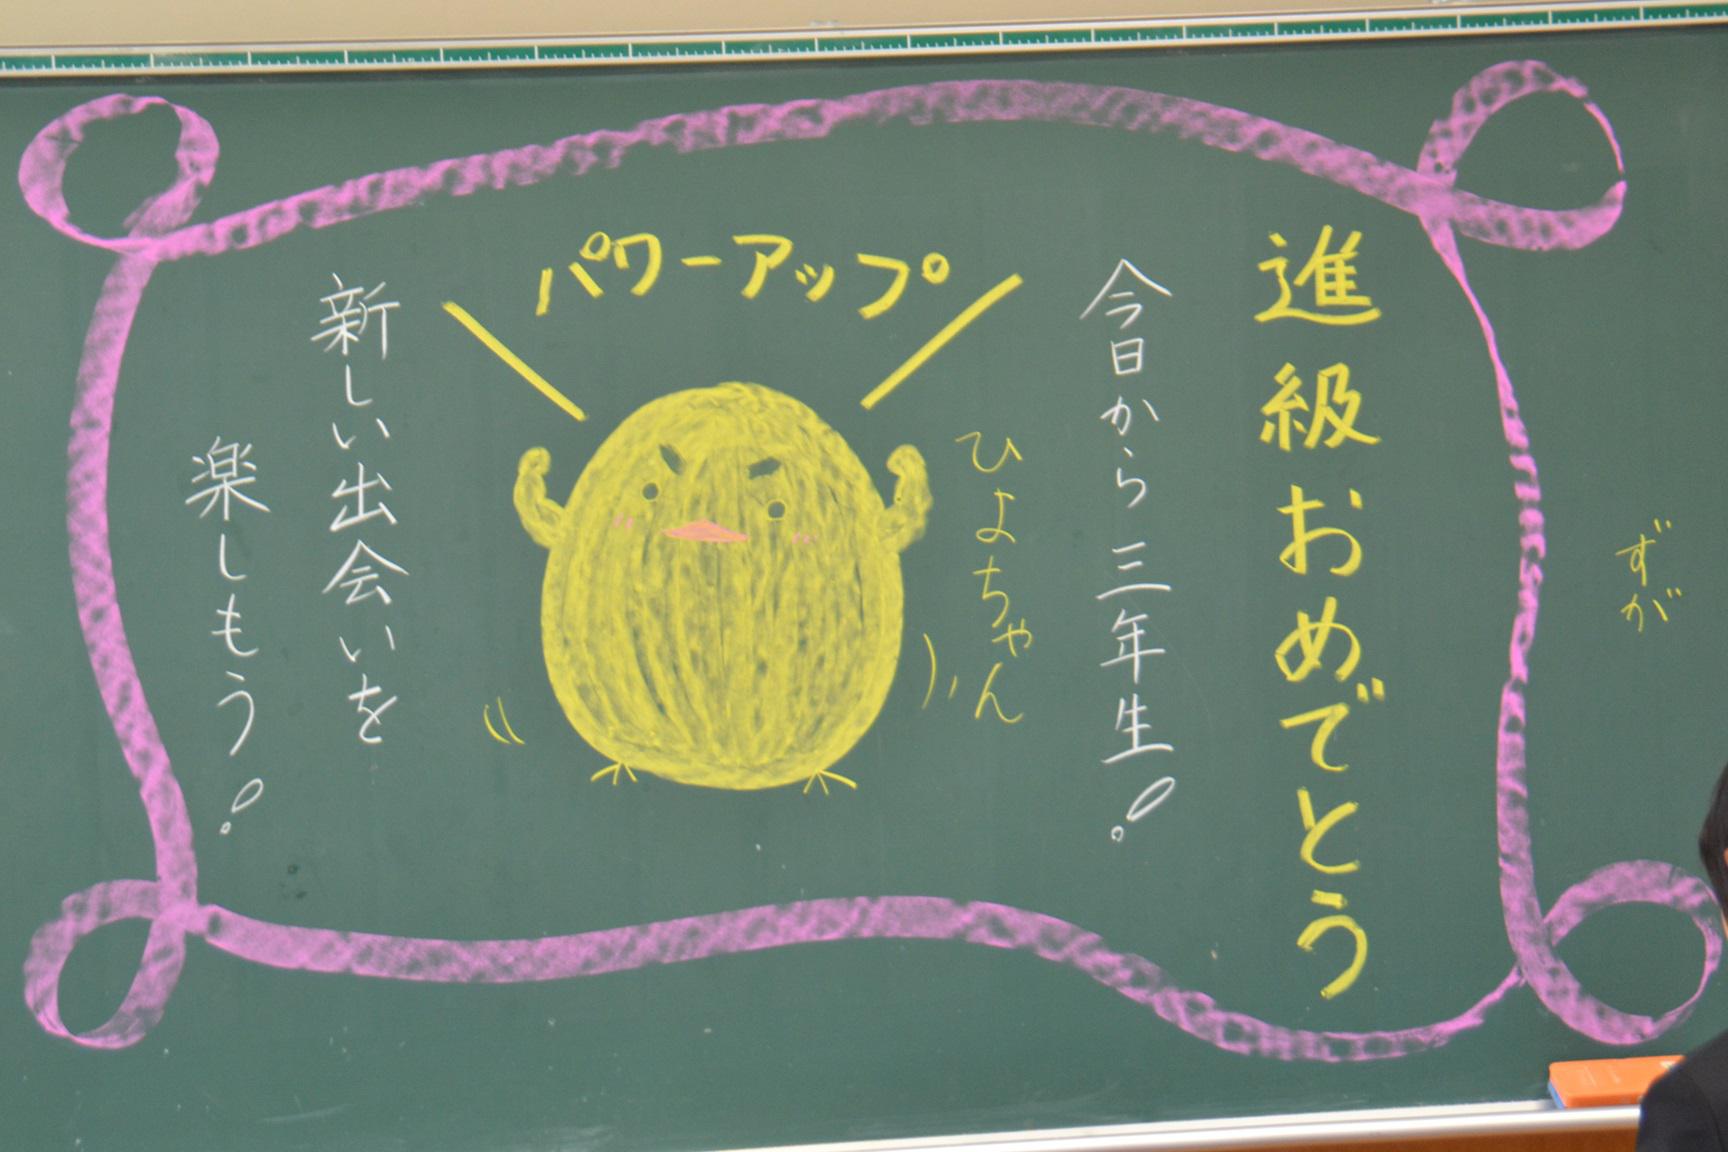 ずが
進級おめでとう
今日から三年生!
ひよちゃん
パワーアップ
新しい出会いを
楽しもう!